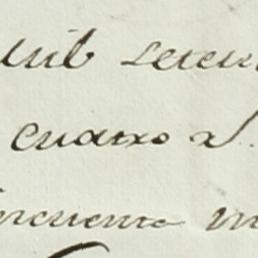 mil seteci
cuatro a
incuenta m